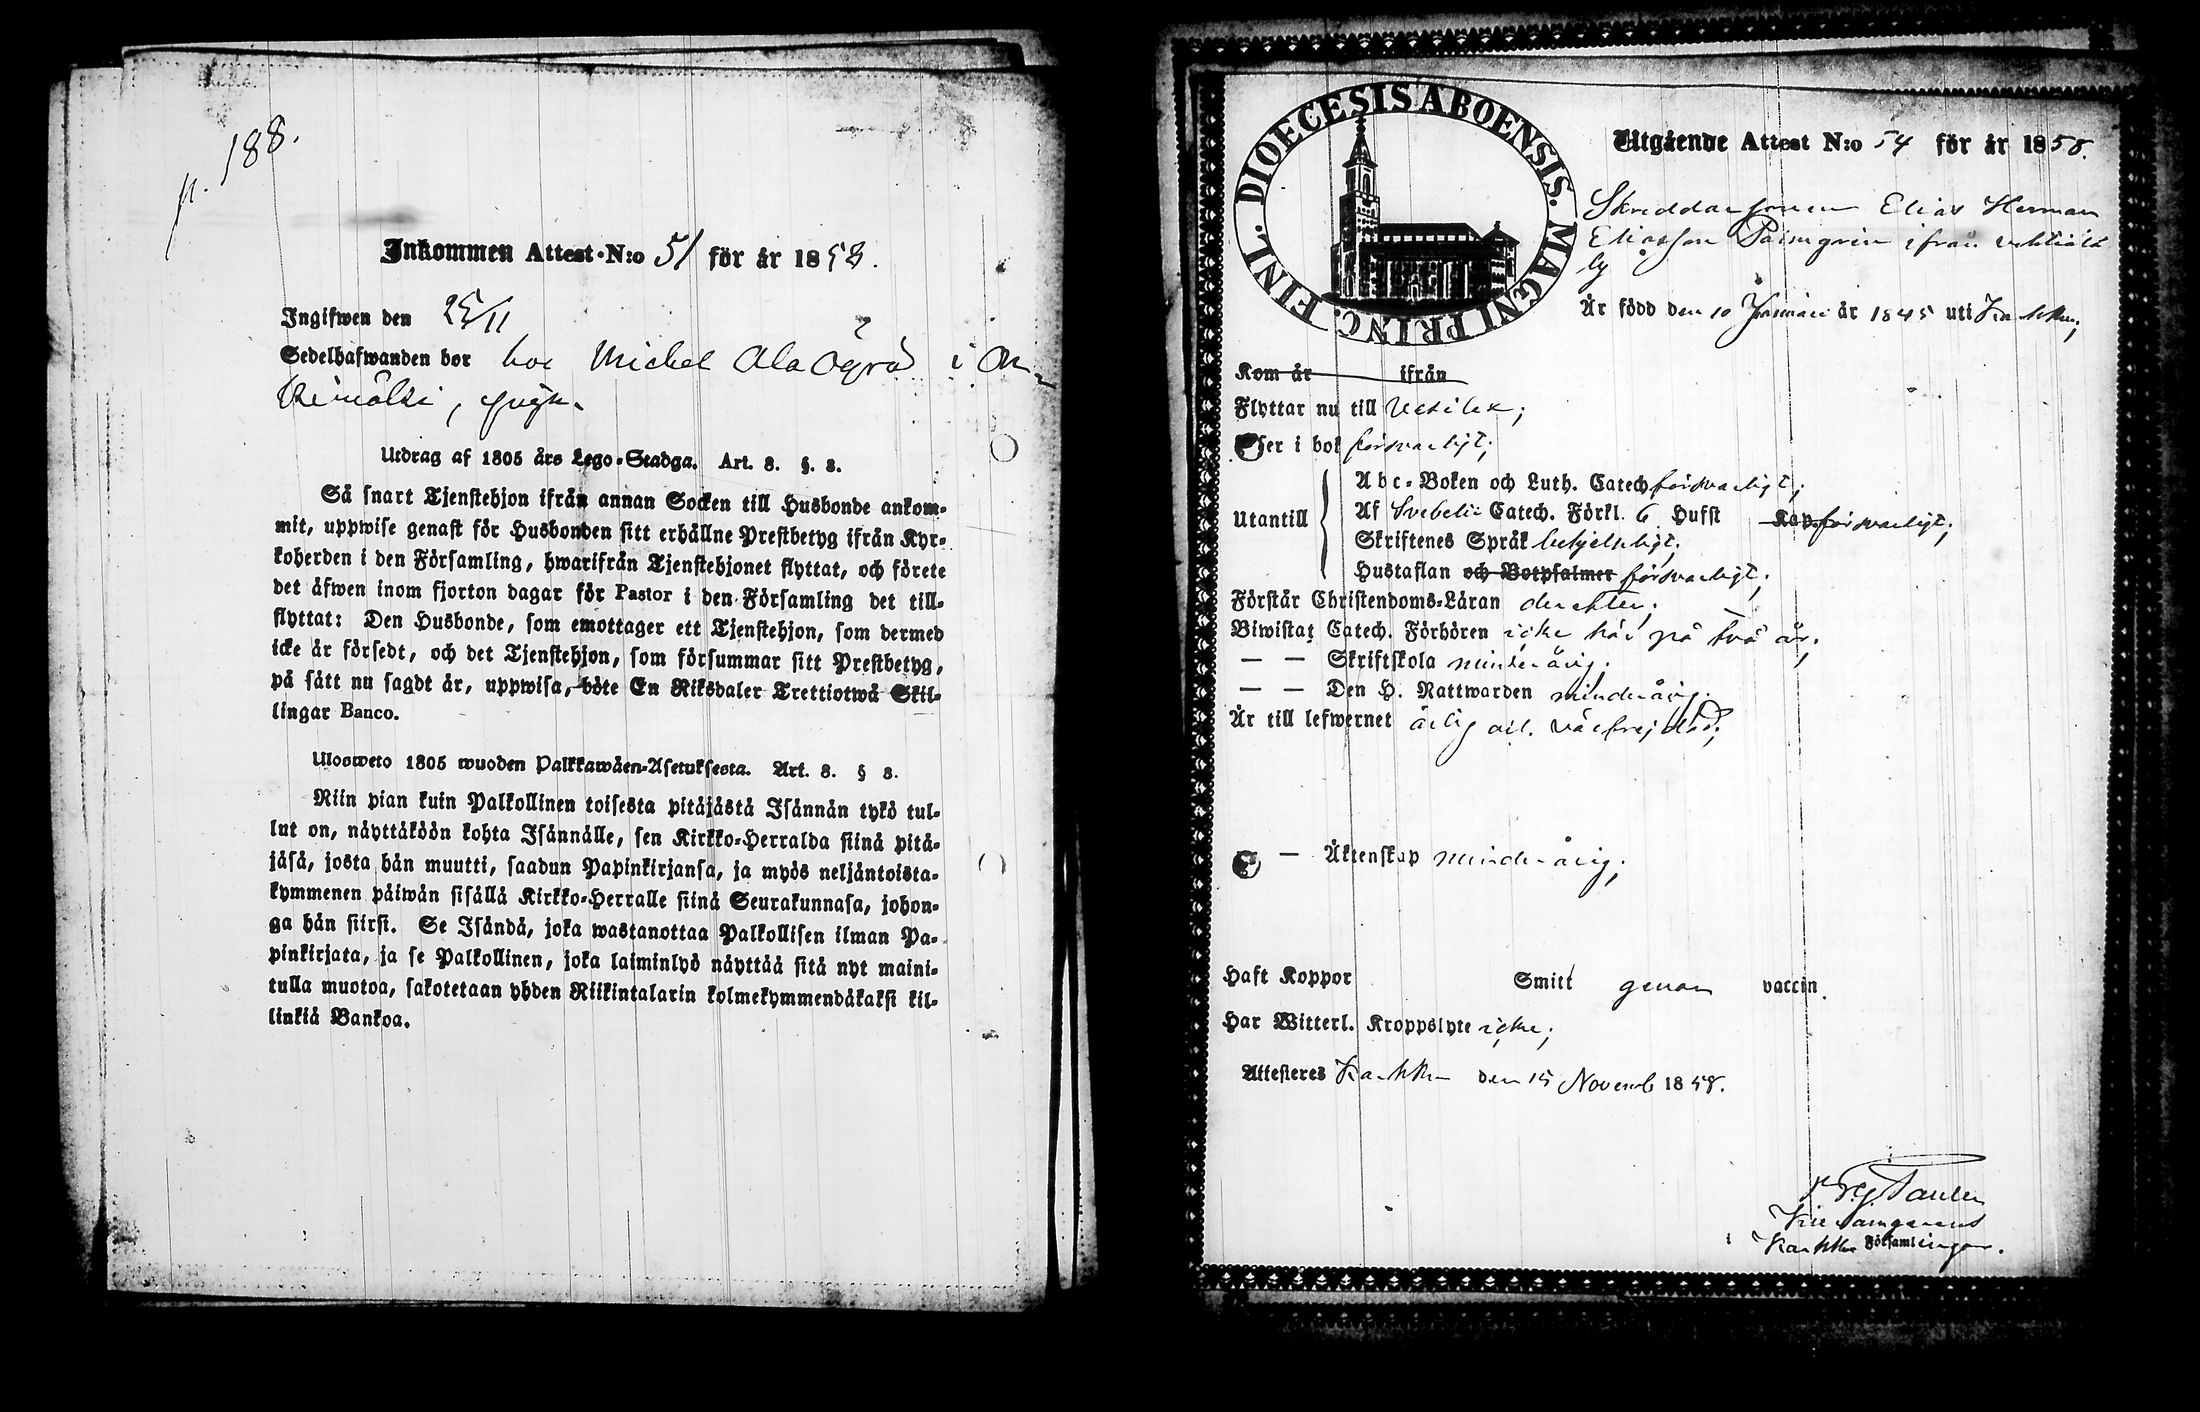 p. 188.
Inkommen Attest N:o 51 för år 1858.
Ingifwen den 25/11
Sedelhafwanden bor hos Michel Ala i
Utdrag af 1805 års Lego-Stadga. Art. 8. §. 8.
Så snart Tjenstehjon ifrån annan Socken till Husbonde ankom-
mit, uppwise genast för Husbonden sitt erhållne Prestbetyg ifrån Kyr-
koherden i den Församling, hwarifrån Tjenstehjonet flyttat, och förete
det äfwen inom fjorton dagar för Pastor i den Församling det till-
flyttat: Den Husbonde, som emottager ett Tjenstehjon, som dermed
icke är försedt, och det Tjenstehjon, som försummar sitt Prestbetyg,
på sätt nu sagdt är, uppwisa, böte En Riksdaler Trettiotwå Skil-
lingar Banco.
Ulosweto 1805 wuoden Palkkawäen-Asetuksesta. Art. 8. § 8.
Niin pian kuin Palkollinen toisesta pitäjästä Isännän tykö tul-
lut on, näyttäköön kohta Isännälle, sen Kirkko-Herralda siinä pitä-
jäsä, josta hän muutti, saadun Papinkirjansa, ja myös neljäntoista-
kymmenen päiwän sisällä Kirkko-Herralle siinä Seurakunnasa, johon-
ga hän siirsi. Se Isändä, joka wastanottaa Palkollisen ilman Pa-
pinkirjata, ja se Palkollinen, joka laiminlyö näyttää sitä nyt maini-
tulla muotoa, sakotetaan yhden Riikintalarin kolmekymmendäkaksi kil-
linkiä Bankoa.
DIOECESIS ABOENSIS. MAGNI PRINC. FINL.
Utgående Attest N:o 54 för år 1858.
Skräddaresonen Elias Herman
Eliasson Palmgren ifrån
by
Är född den 10 Januari år 1845 uti Karkku;
Kom år ifrån
Flyttar nu till Vesilax;
Läser i bok försvarligt;
Utantill
Abc-Boken och Luth. Catech försvarligt;
Af Svebelii Catech. Förkl. 6 Hufst Kap. försvarligt;
Skriftenes Språk behjelpligt;
Hustaflan och Botpsalmer försvarligt;
Förstår Christendoms-Läran derefter;
Biwistat Catech. Förhören icke här på två år;
— — Skriftskola minderårig;
— — Den H. Nattwarden minderårig;
Är till lefwernet ärlig och välfrejdad;
— Äktenskap minderårig;
Haft Koppor Smitt genom vaccin.
Har Witterl. Kroppslyte icke;
Attesteras Karkku den 15 Novemb 1858.
Karkku Församlingar.